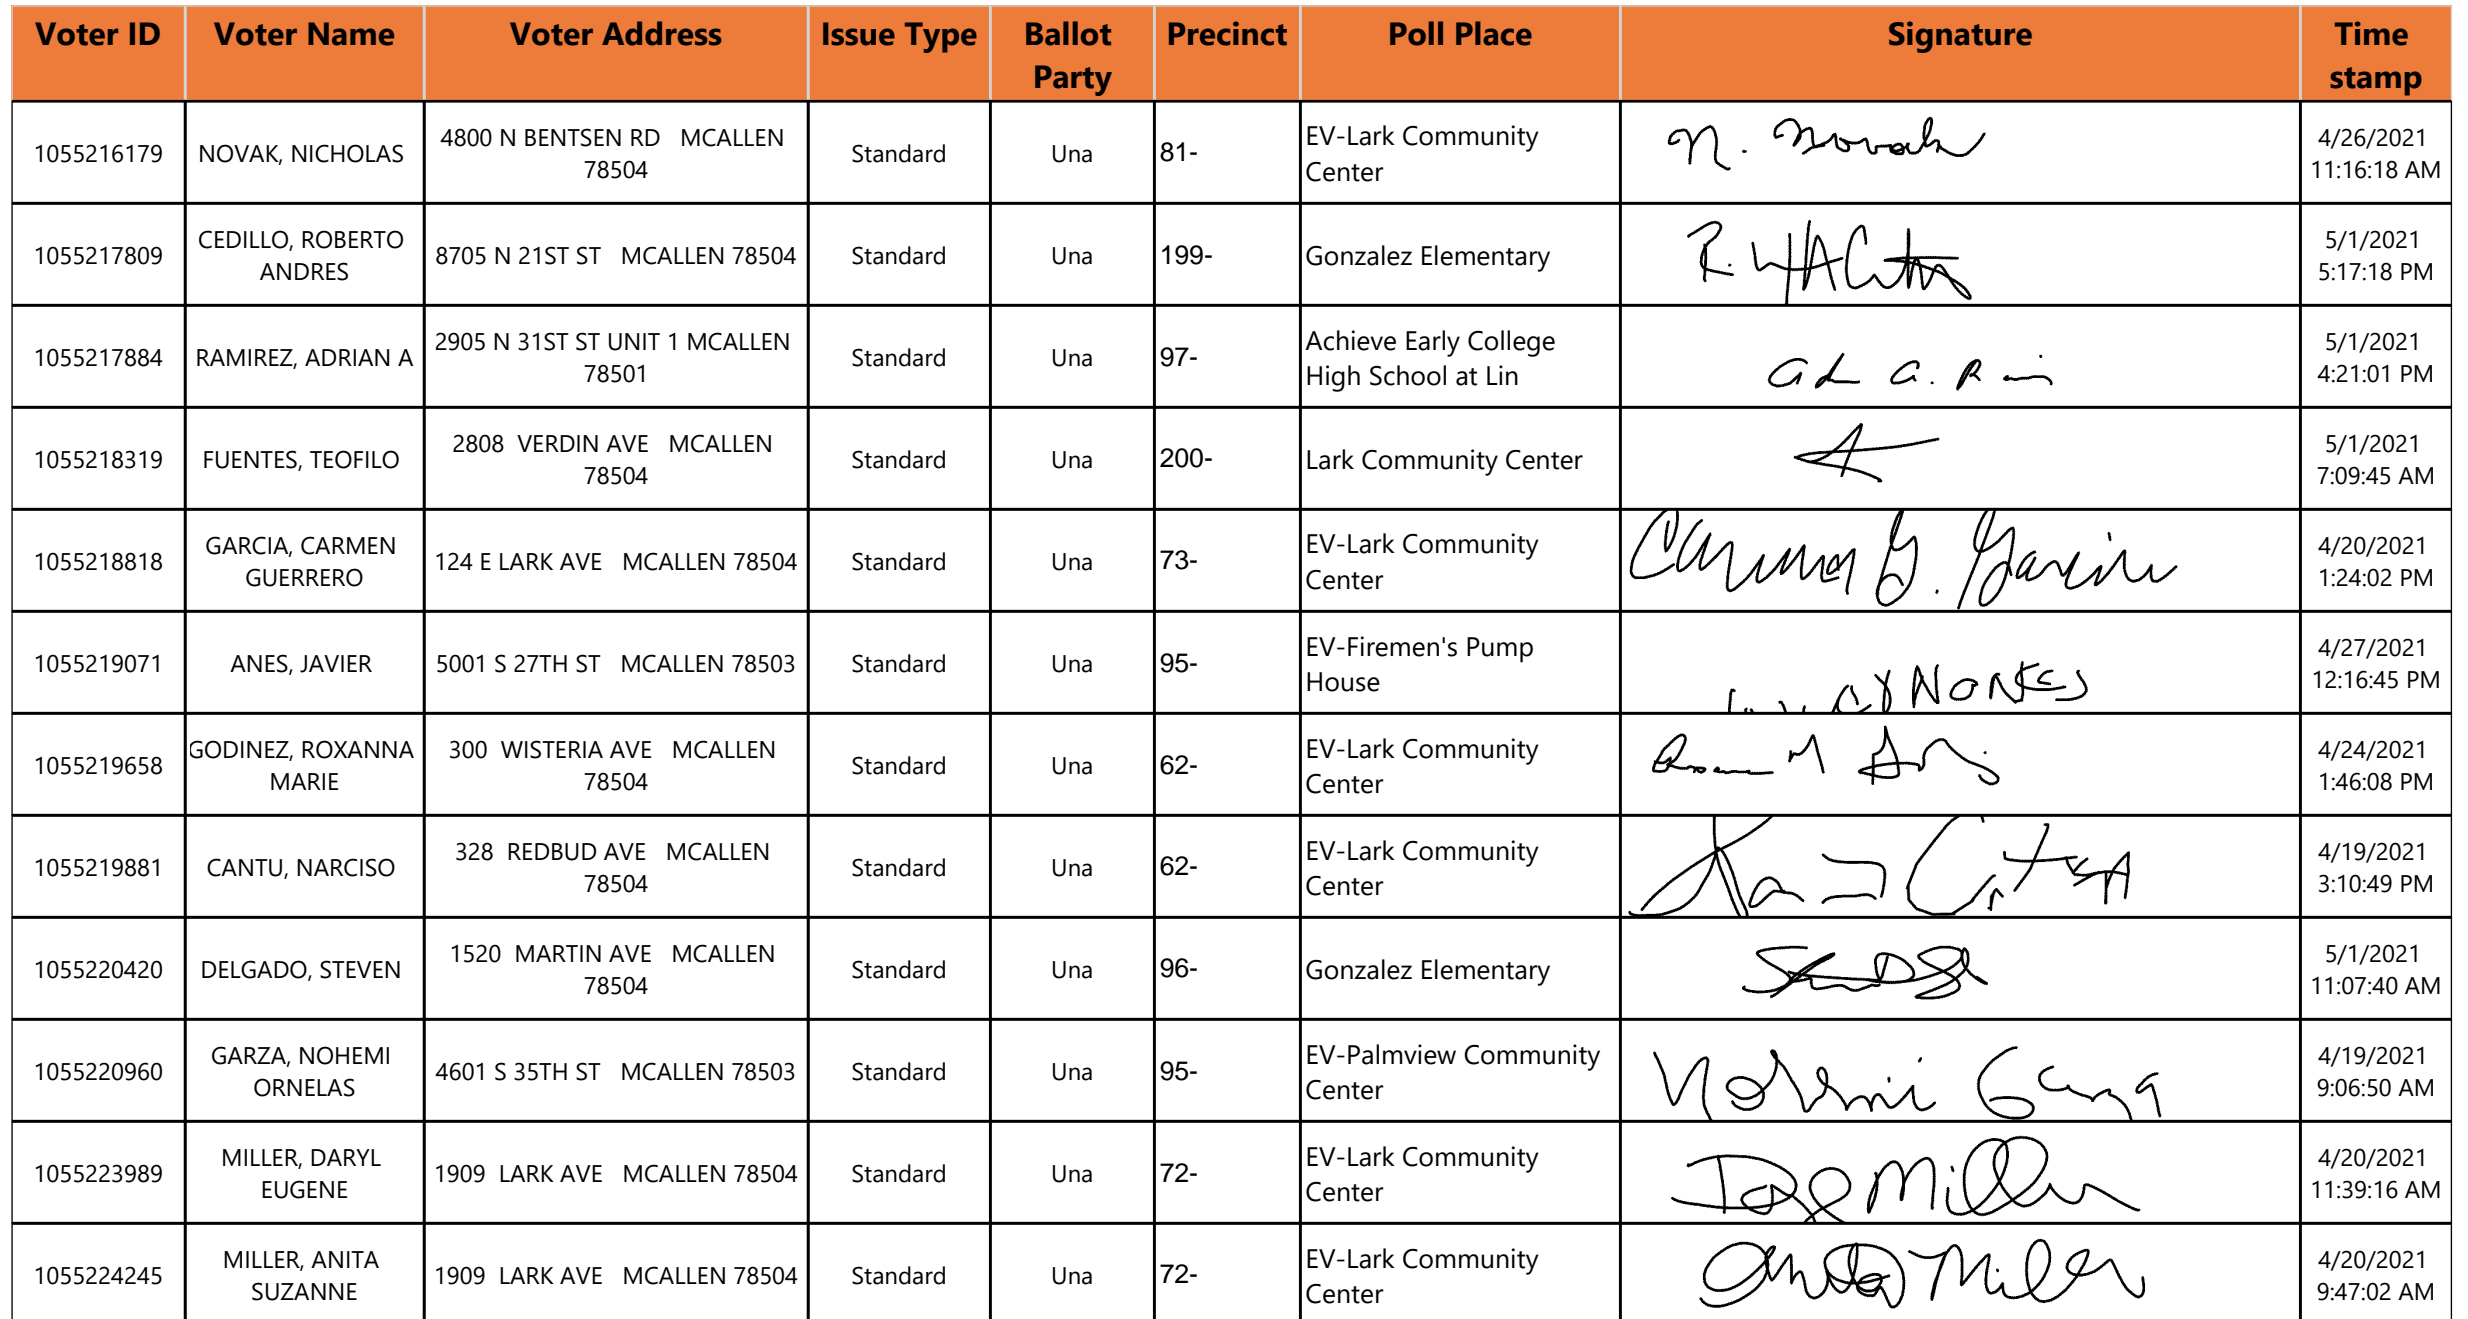 Voter ID Voter Name Voter Address Issue Type Ballot Party Precinct Poll Place Signature Time stamp
1055216179 NOVAK, NICHOLAS 4800 N BENTSEN RD MCALLEN 78504 Standard Una 81- EV-Lark Community Center N. Novak 4/26/2021 11:16:18 AM
1055217809 CEDILLO, ROBERTO ANDRES 8705 N 21ST ST MCALLEN 78504 Standard Una 199- Gonzalez Elementary 5/1/2021 5:17:18 PM
1055217884 RAMIREZ, ADRIAN A 2905 N 31ST ST UNIT 1 MCALLEN 78501 Standard Una 97- Achieve Early College High School at Lin 5/1/2021 4:21:01 PM
1055218319 FUENTES, TEOFILO 2808 VERDIN AVE MCALLEN 78504 Standard Una 200- Lark Community Center 5/1/2021 7:09:45 AM
1055218818 GARCIA, CARMEN GUERRERO 124 E LARK AVE MCALLEN 78504 Standard Una 73- EV-Lark Community Center Carmen G. Garcia 4/20/2021 1:24:02 PM
1055219071 ANES, JAVIER 5001 S 27TH ST MCALLEN 78503 Standard Una 95- EV-Firemen's Pump House 4/27/2021 12:16:45 PM
1055219658 GODINEZ, ROXANNA MARIE 300 WISTERIA AVE MCALLEN 78504 Standard Una 62- EV-Lark Community Center 4/24/2021 1:46:08 PM
1055219881 CANTU, NARCISO 328 REDBUD AVE MCALLEN 78504 Standard Una 62- EV-Lark Community Center 4/19/2021 3:10:49 PM
1055220420 DELGADO, STEVEN 1520 MARTIN AVE MCALLEN 78504 Standard Una 96- Gonzalez Elementary 5/1/2021 11:07:40 AM
1055220960 GARZA, NOHEMI ORNELAS 4601 S 35TH ST MCALLEN 78503 Standard Una 95- EV-Palmview Community Center Nohemi Garza 4/19/2021 9:06:50 AM
1055223989 MILLER, DARYL EUGENE 1909 LARK AVE MCALLEN 78504 Standard Una 72- EV-Lark Community Center Miller 4/20/2021 11:39:16 AM
1055224245 MILLER, ANITA SUZANNE 1909 LARK AVE MCALLEN 78504 Standard Una 72- EV-Lark Community Center Anita Miller 4/20/2021 9:47:02 AM